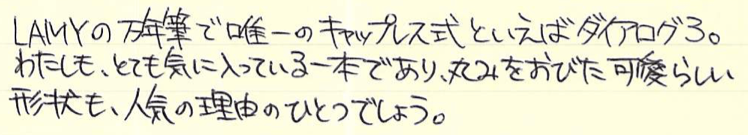 LAMYの万年筆で唯一のキャップレス式といえばダイアログ3。
わたしも、とても気に入っている一本であり、丸みをおびた可愛らしい
形状も、人気の理由のひとつでしょう。